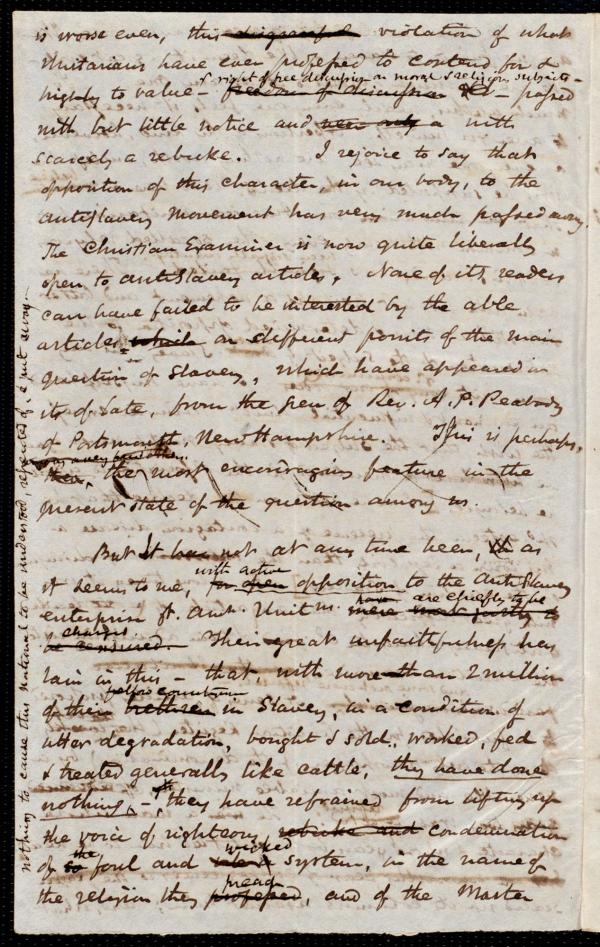 is worse even, this disgraceful violation of what
Unitarians have ever professed to contend for &
& right of free discussion on moral & religious subjects -
highly to value - freedom of discussion &c - passed
with but little notice and a with
scarcely a rebuke. I rejoice to say that
opposition of this character, in our body, to the
antislavery movement has very much passed away.
The Christian Examiner is now quite liberally
open to antislavery articles. None of its readers
can have failed to be interested by the able
articles, which on different points of the main
question of Slavery, which have appeared in
it, of late, from the pen of Rev. A. P. Peabody
of Portsmouth, New Hampshire. This is perhaps,
the most encouraging feature in the
present state of the question among us.
But It has not at any time been, as
with active
it seems to me, for open opposition to the AntiSlavery
have are chiefly to be
enterprise tt. Am. Unitns. were most justly to
charged.
be censured. Their great unfaithfulness has
lain in this - that, with more than 2 million
fellow countrymen
of their brethren in Slavery, in a condition of
utter degradation, bought & sold, worked, fed
& treated generally like cattle, they have done
nothing, - they have refrained from lifting up
the voice of righteous, rebuke and condemnation
the wicked
of so foul and system, in the name of
preach
the religion they professed, and of the Master
nothing to cause this national to be understood, repented of, & put away.